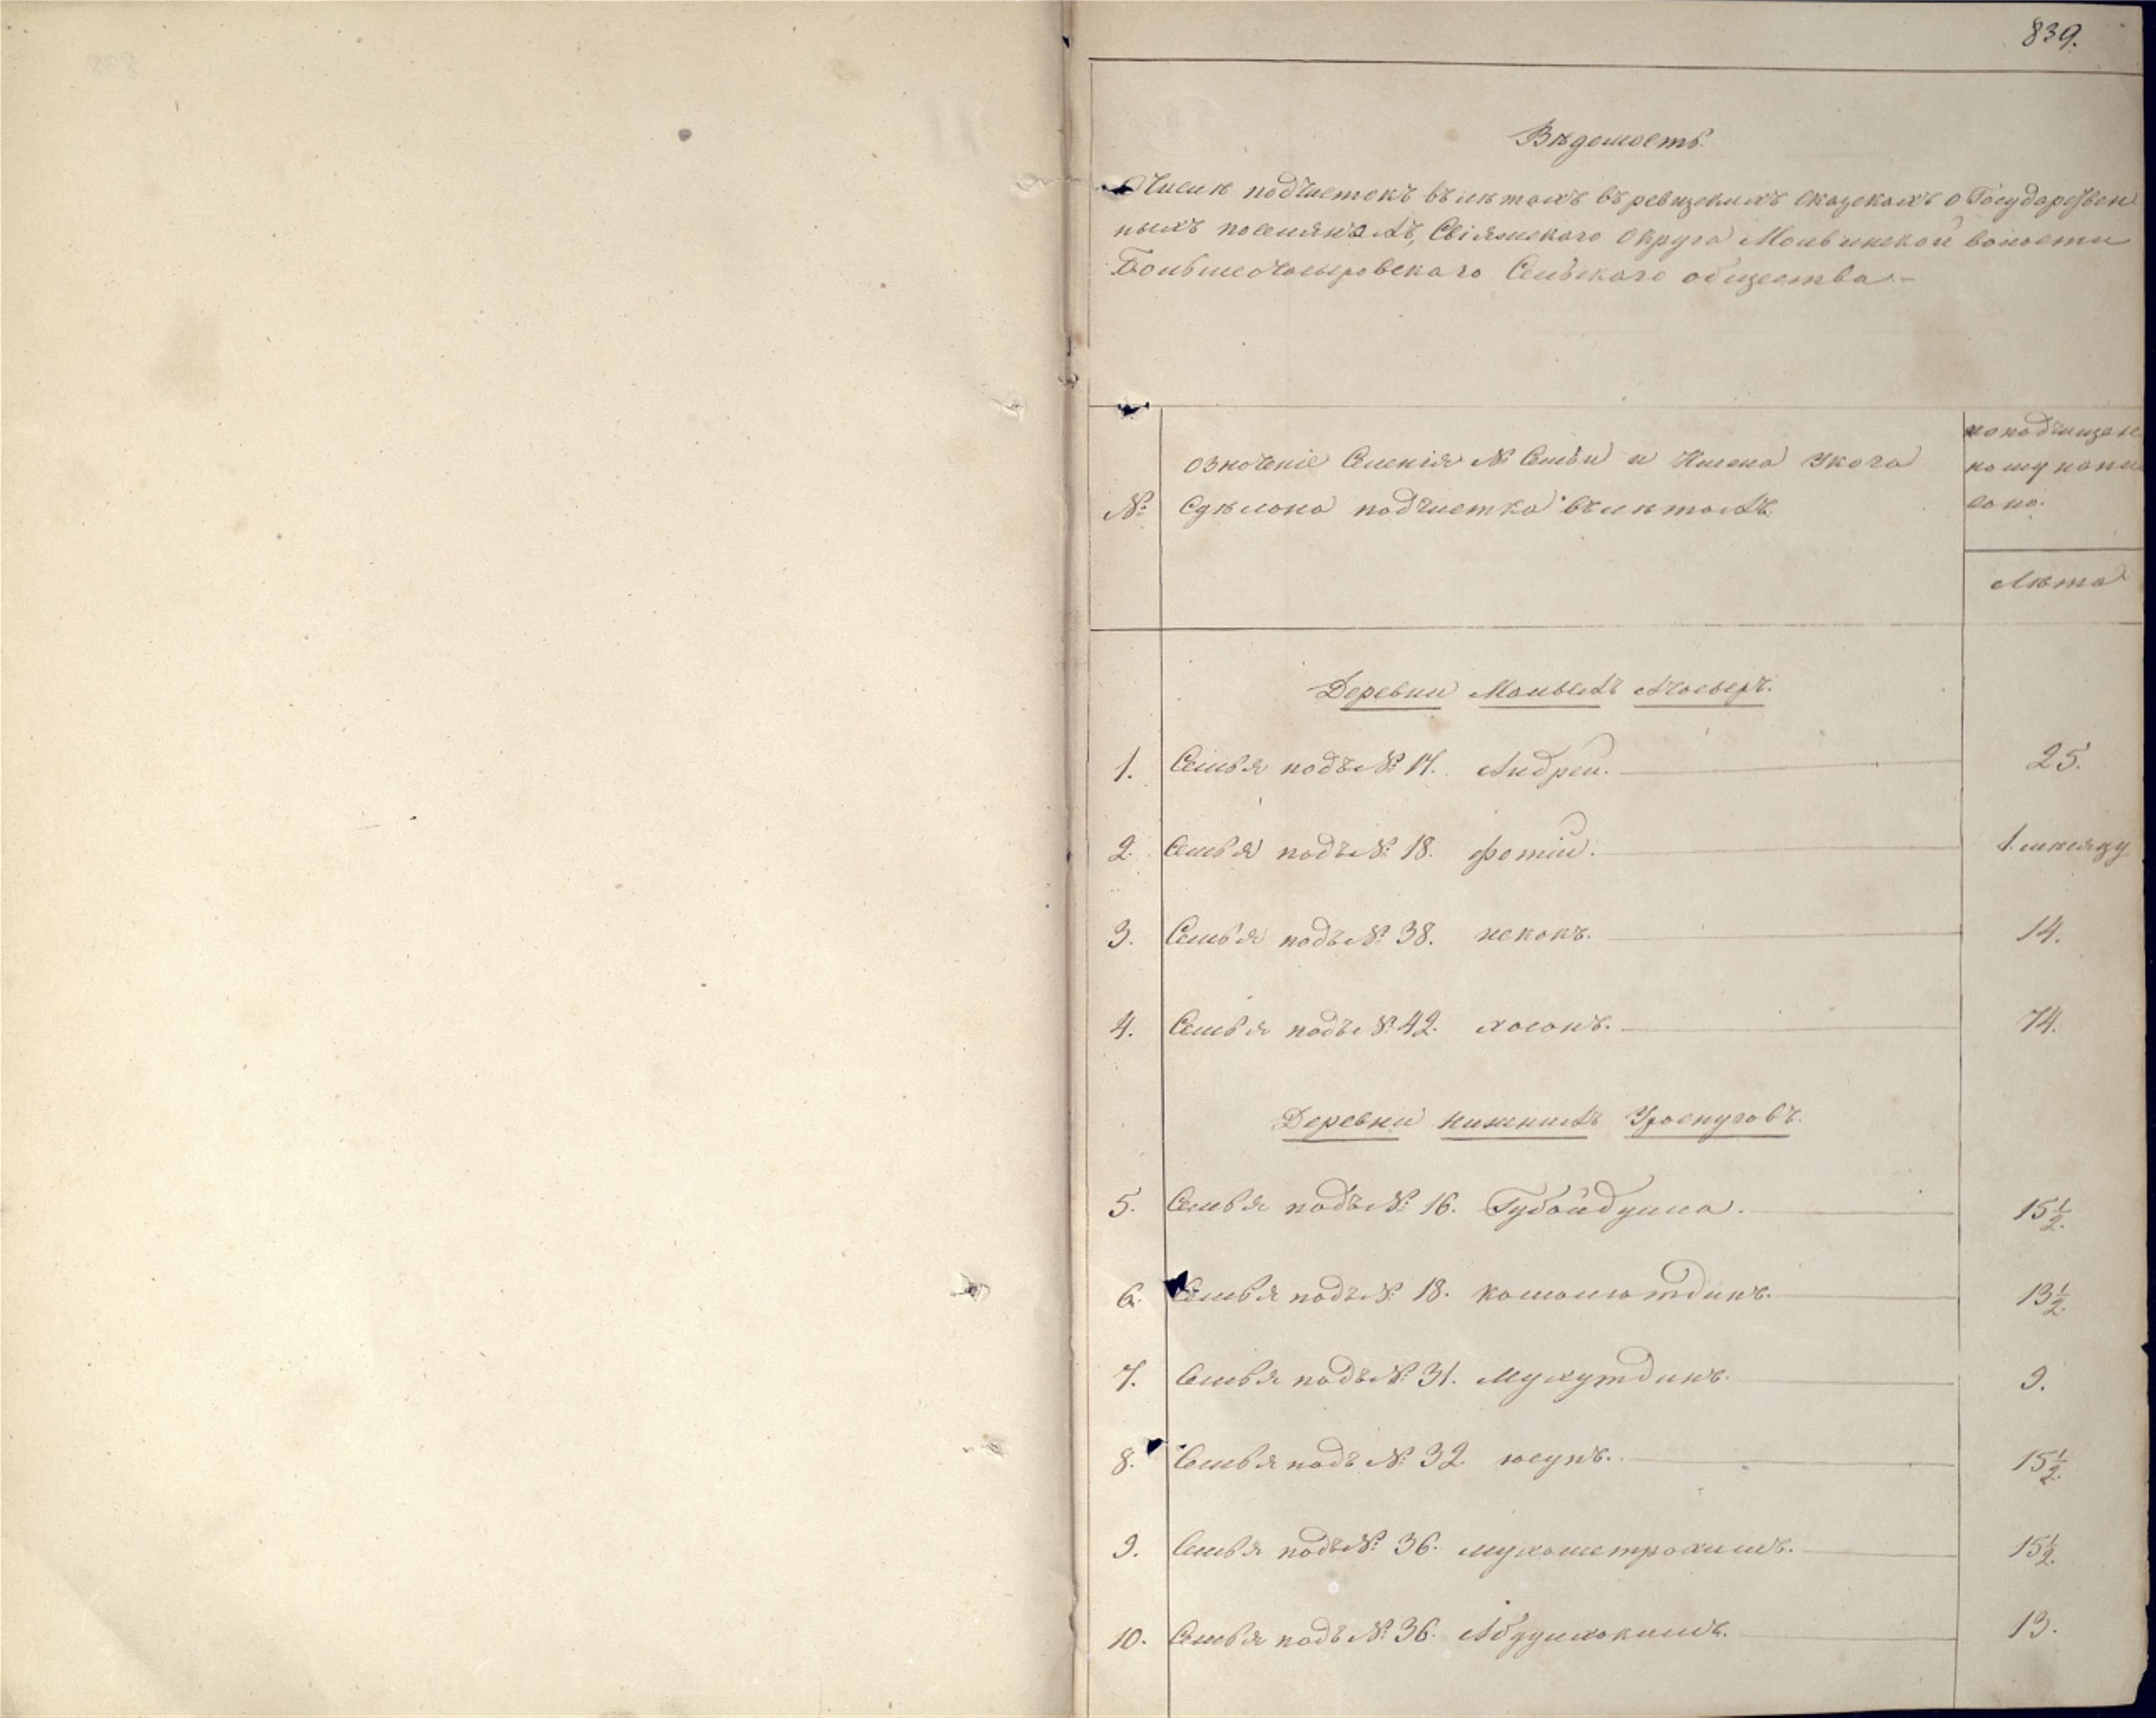 839.
Вѣдомость
О числѣ подчистокъ въ лѣтахъ въ ревизскихъ сказкахъ о Государствен
ныхъ поселянахъ, Свіяжскаго Округа Молвинской волости
Большеочасыровскаго Сельскаго общества.-
№
означеніе Селенія № Семьи и Имена укого
Сдѣлана подчистка въ лѣтахъ.
по подчищен
ному напи
сано.
Лѣта
Деревни Малыхъ Ачасыръ.
1. Семья подъ № 14. Андрей. 25.
2. Семья подъ № 18. фотій. 1. мѣсяцу
3. Семья подъ № 38. 14.
4. Семья подъ № 42. хасанъ. 74.
Деревни нижнихъ Ураспуговъ.
5. Семья подъ № 16. Губайдулла. 15 1/2.
6. Семья подъ № 18. камалютдинъ. 13 1/2.
7. Семья подъ № 31. Мухутдинъ. 9.
8. Семья подъ № 32 юсупъ. 15 1/2.
9. Семья подъ № 36. мухаметрахимъ. 15 1/2.
10. Семья подъ № 36. Абдулхакимъ. 13.